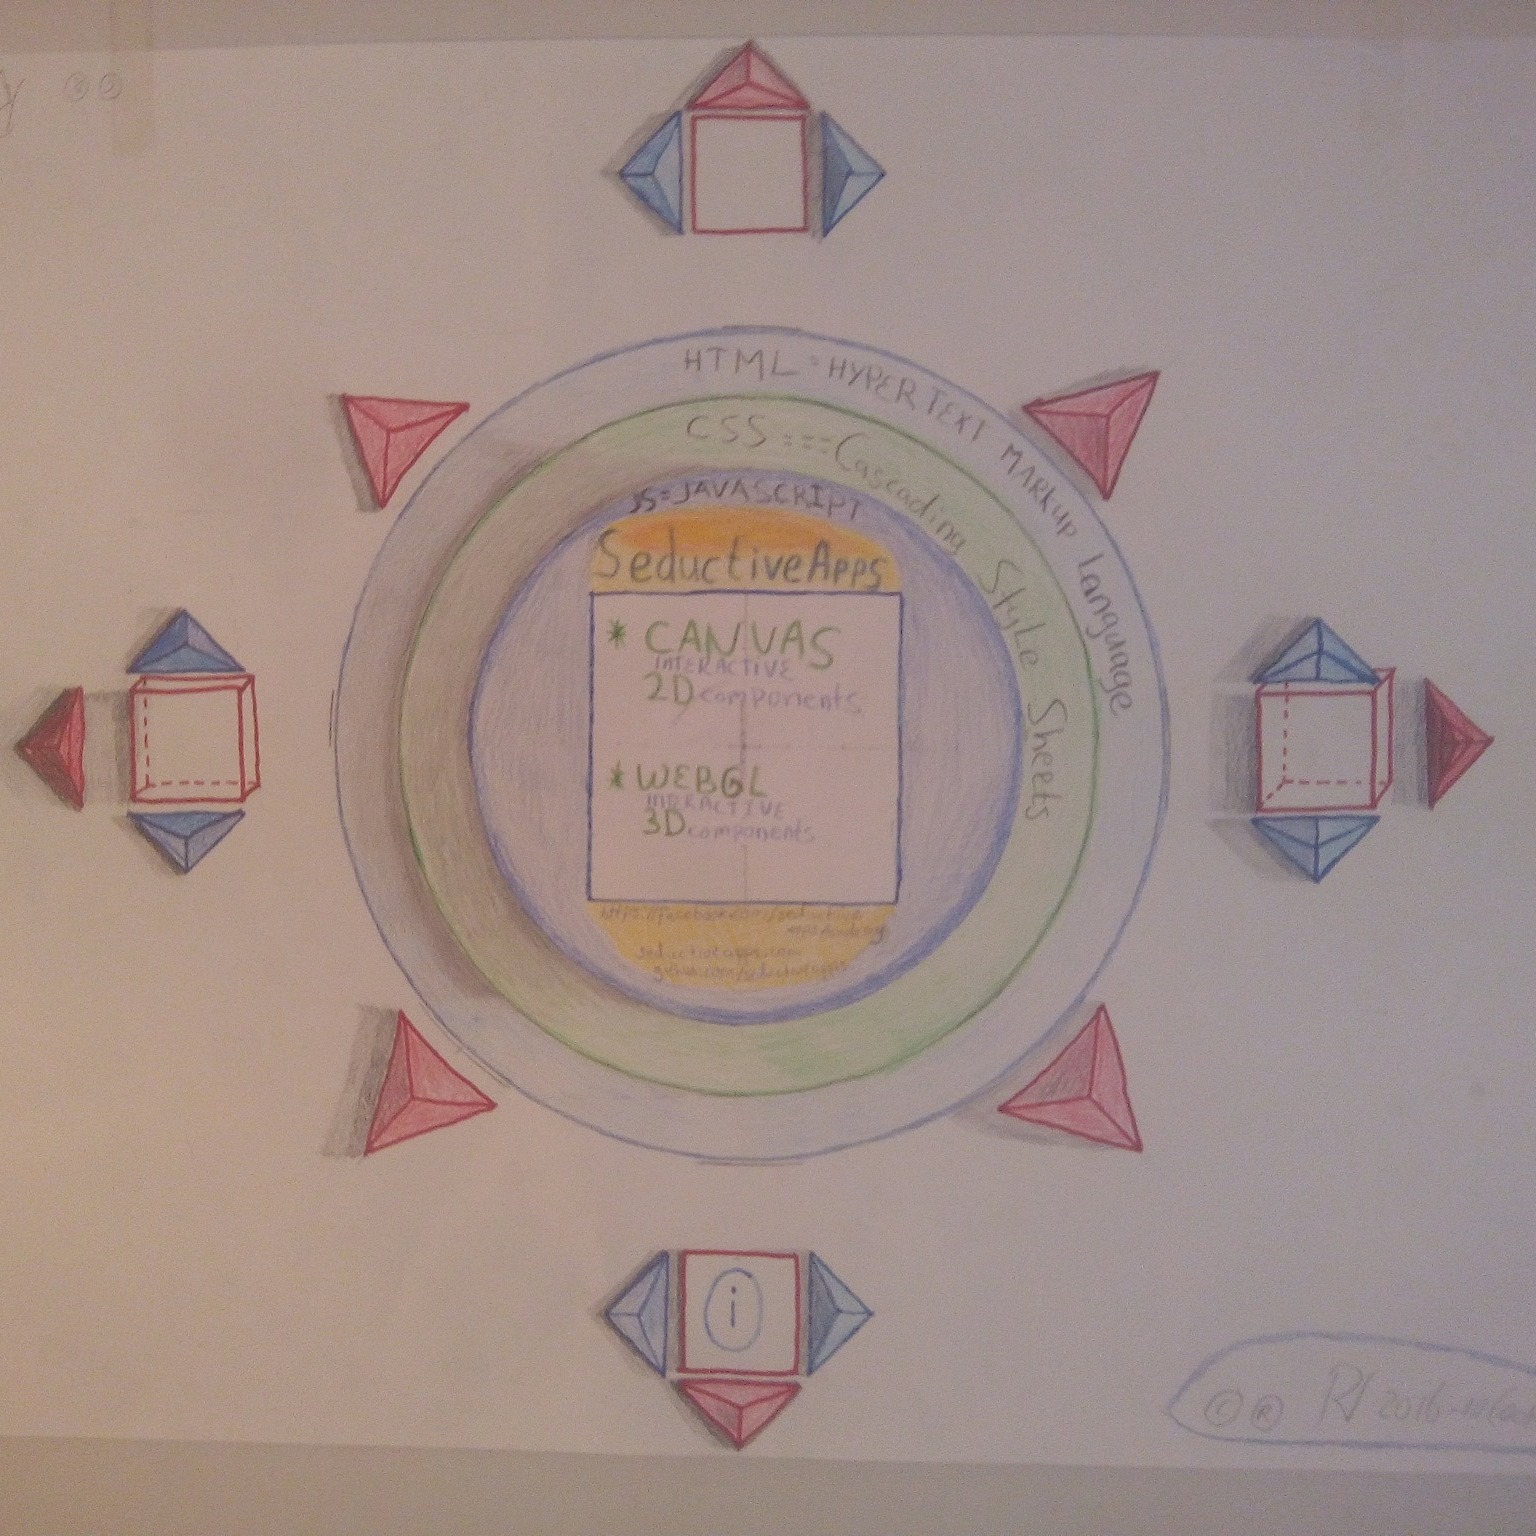 HTML = HYPERTEXT MARKUP Language
CSS === Cascading Style Sheets
JS=JAVASCRIPT
SeductiveApps
* CANVAS
INTERACTIVE
2D components
* WEBGL
INTERACTIVE
3D components
https://facebook.com/seductive
appsAcademy
seductiveapps.com
github.com/seductiveapps
i
© ® RV 2016